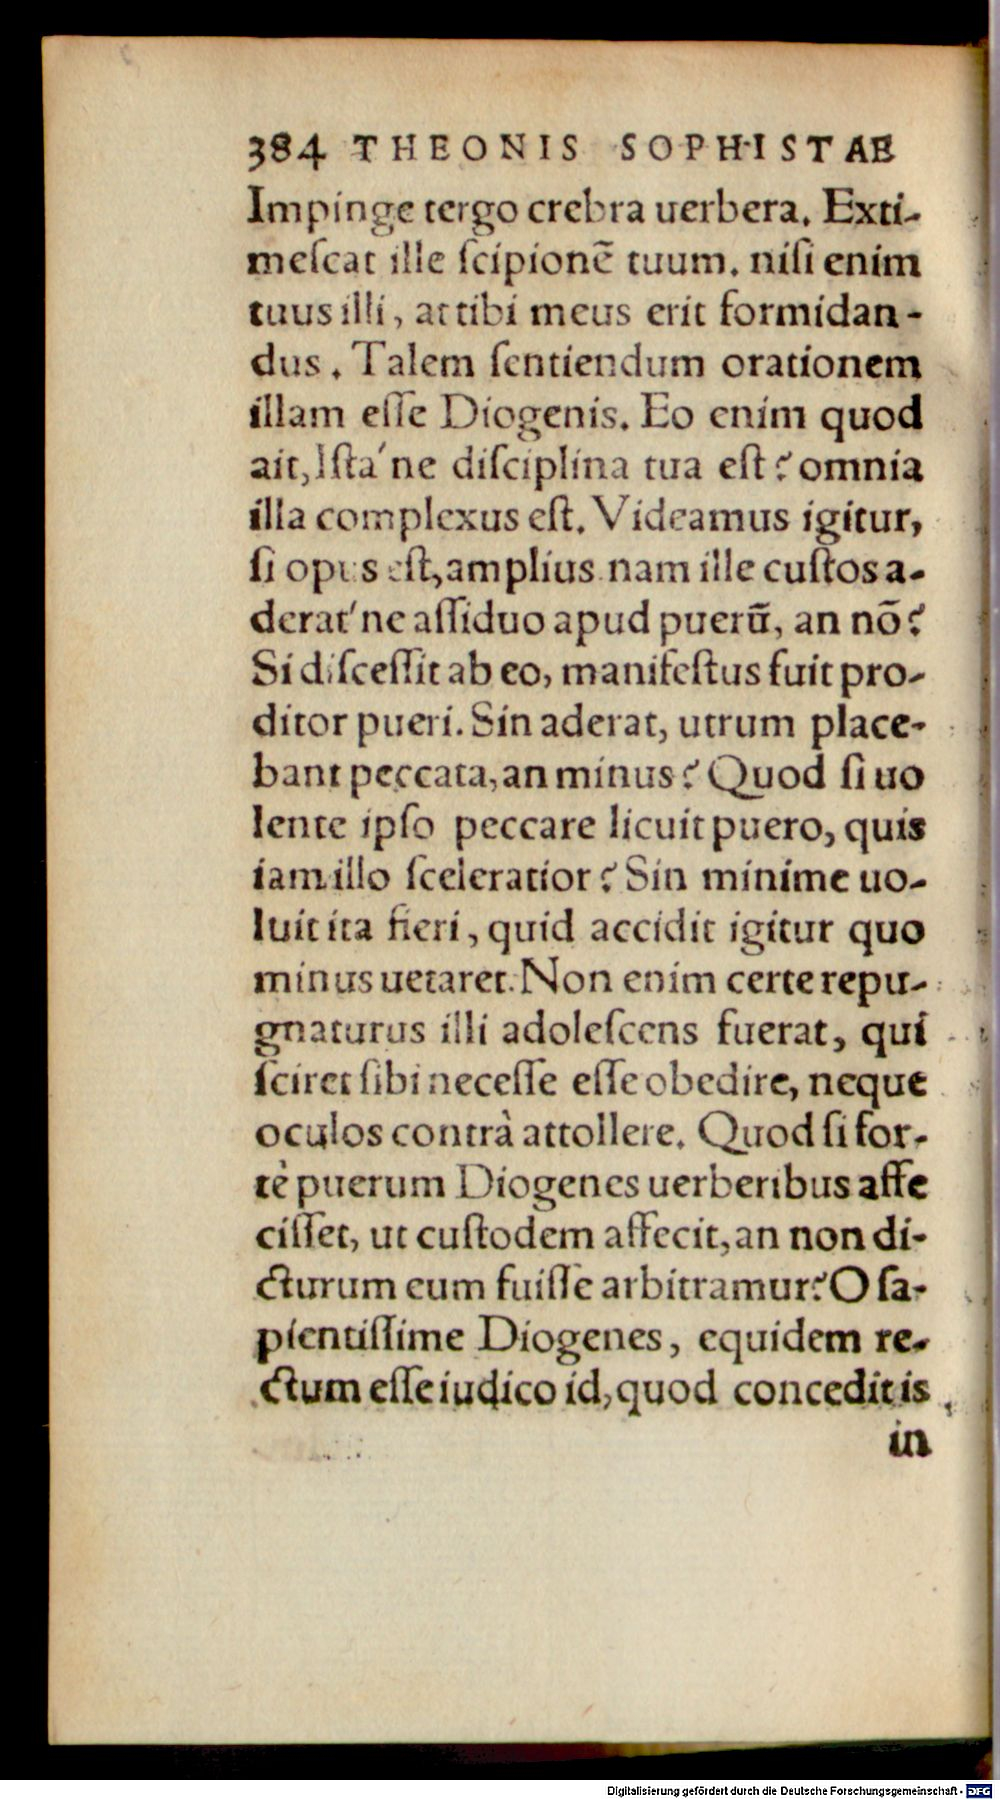 384 THEONIS SOPHISTAE
Impinge tergo crebra uerbera. Exti-
meſcat ille ſcipionē tuum. niſi enim
tuus illi, at tibi meus erit formidan-
dus. Talem ſentiendum orationem
illam eſſe Diogenis. Eo enim quod
ait, Iſta´ne diſciplina tua eſt? omnia
illa complexus eſt. Videamus igitur,
ſi opus eſt, amplius. nam ille cuſtos a-
derat´ne aſſiduo apud puerū, an nō?
Si diſceſſit ab eo, manifeſtus fuit pro-
ditor pueri. Sin aderat, utrum place-
bant peccata, an minus? Quod ſi uo
lente ipſo peccare licuit puero, quis
iam illo ſceleratior? Sin minime uo-
luit ita fieri, quid accidit igitur quo
minus uetaret. Non enim certe repu-
gnaturus illi adoleſcens fuerat, qui
ſciret ſibi neceſſe eſſe obedire, neque
oculos contrà attollere. Quod ſi for-
tè puerum Diogenes uerberibus affe
ciſſet, ut cuſtodem affecit, an non di-
cturum eum fuiſſe arbitramur? O ſa-
pientiſſime Diogenes, equidem re-
ctum eſſe iudico id, quod concedit is
in
Digitalisierung gefördert durch die Deutsche Forschungsgemeinschaft - DFG